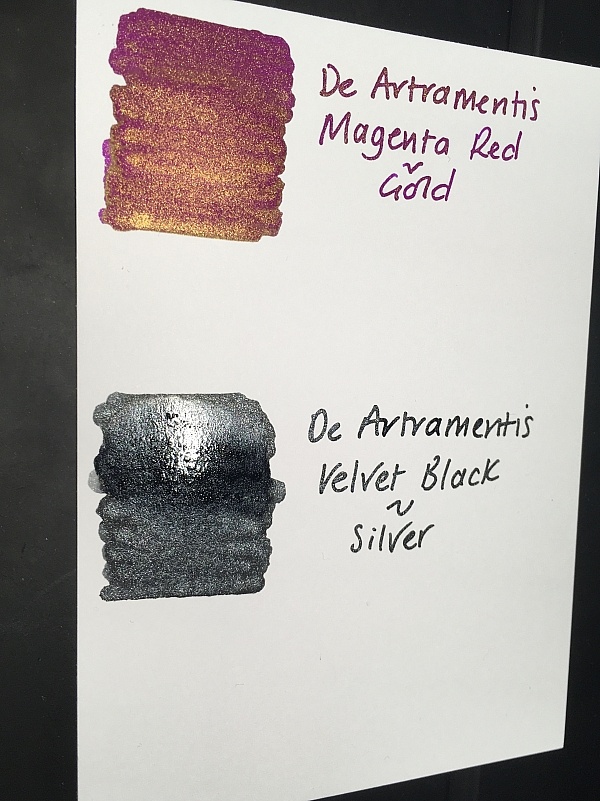 De Artramentis
Magenta Red
~
Gold
De Artramentis
Velvet Black
~
Silver